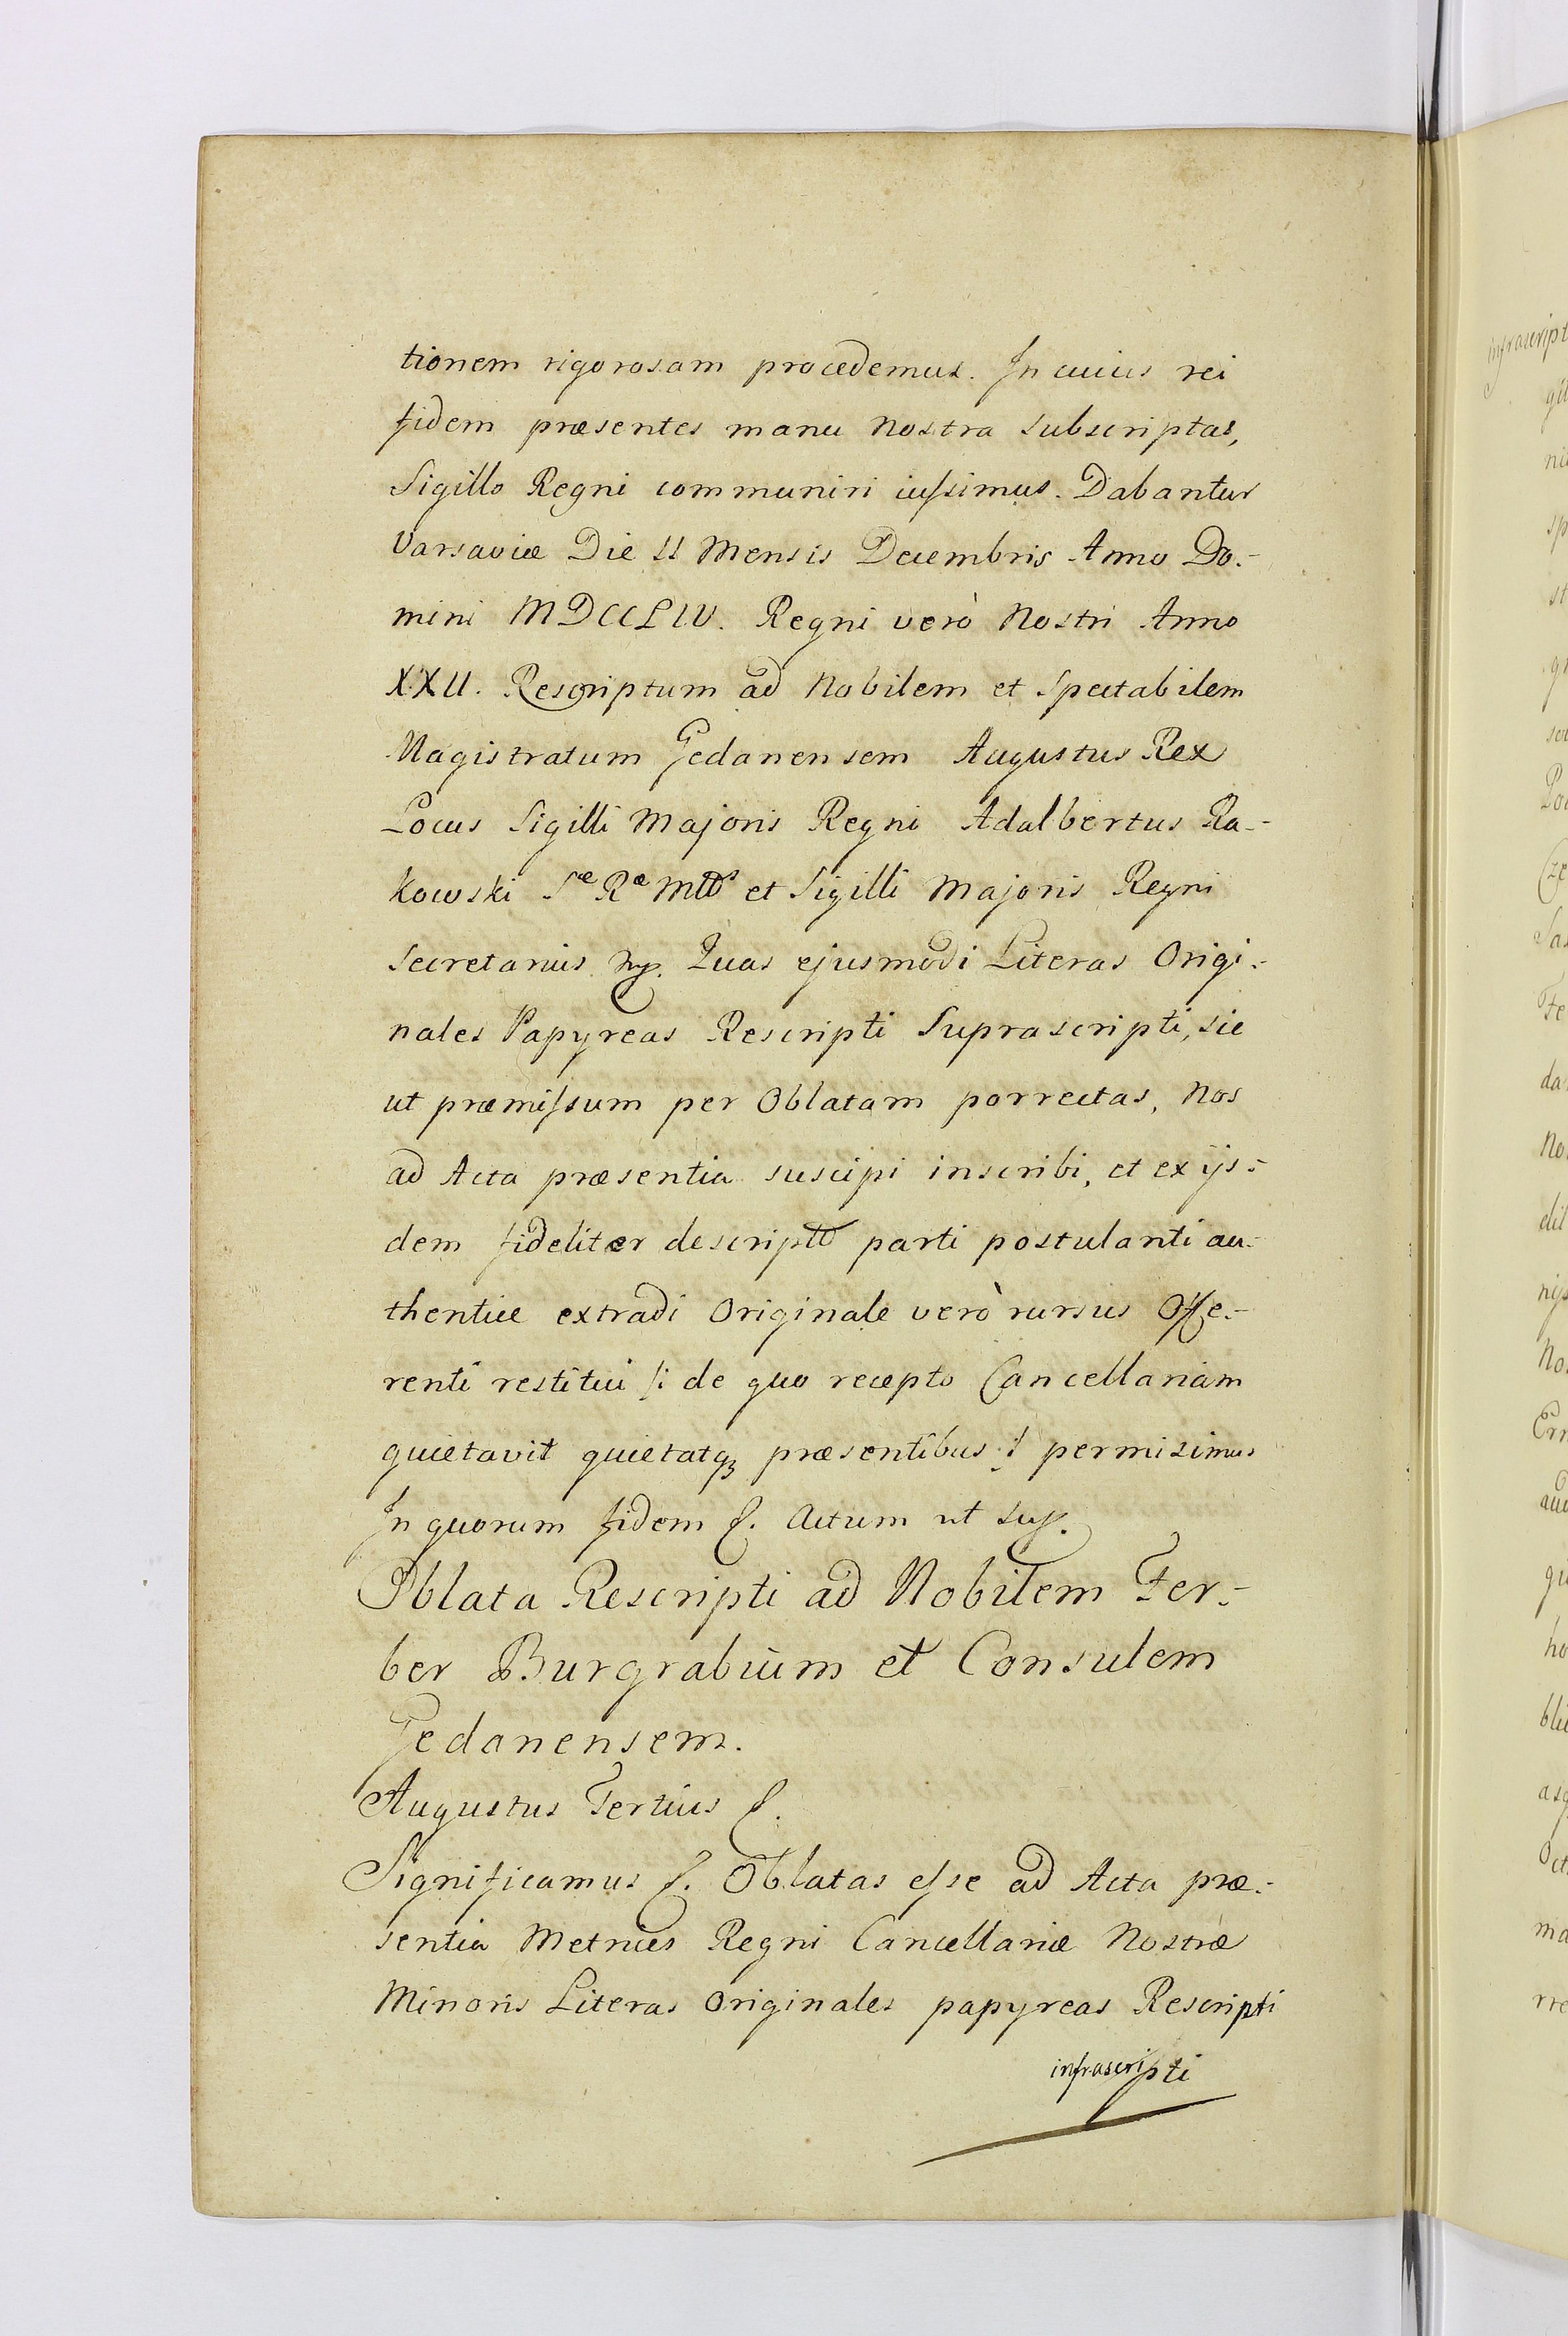 tionem rigorosam procedemus. In cuius rei
fidem præsentes manu Nostra subscriptas,
Sigillo Regni communiri iussimus. Dabantur
Varsaviæ Die 11 Mensis Decembris Anno Do-
mini MDCCLIV. Regni verò Nostri Anno
XXII. Rescriptum ad Nobilem et Spectabilem
Magistratum Gedanensem Augustus Rex
Locus Sigilli Majoris Regni Adalbertus Ra-
kowski Sæ Ræ Mttis et Sigilli Majoris Regni
Secretarius Quas ejusmodi Literas Origi-
nales Papyreas Rescripti Suprascripti, sic
ut præmissum per Oblatam porrectas, Nos
ad Acta præsentia suscipi inscribi, et ex ijs-
dem fideliter descriptt parti postulanti au-
thentice extradi Originale verò rursus Offe-
renti restitui /: de quo recepto Cancellariam
quietavit quietatq3 præsentibus :/ permisimus
In quorum fidem &. Actum ut sup.
Oblata Rescripti ad Nobilem Fer-
ber Burgrabium et Consulem
Gedanensem.
Augustus Tertius &.
Significamus &. Oblatas esse ad Acta præ-
sentia Metrices Regni Cancellariæ Nostræ
Minoris Literas Originales papyreas Rescripti
infrascripti